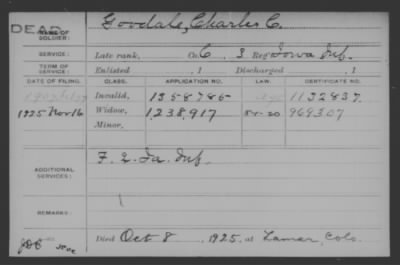 DEAD Goodale, Charles C.
NAME OF SOLDIER:
SERVICE: Late rank, Co. C, 3 Reg't Iowa Inf.
TERM OF SERVICE: Enlisted , 1 Discharged , 1
DATE OF FILING. CLASS. APPLICATION NO. LAW. CERTIFICATE NO.
Invalid, 1358785 1132837
1925 Nov 16 Widow, 1,238,917 969307
Minor,
ADDITIONAL SERVICES: F. 2. Ia. Inf.
REMARKS:
Died Oct 8 , 1925, at Lamar, Colo.